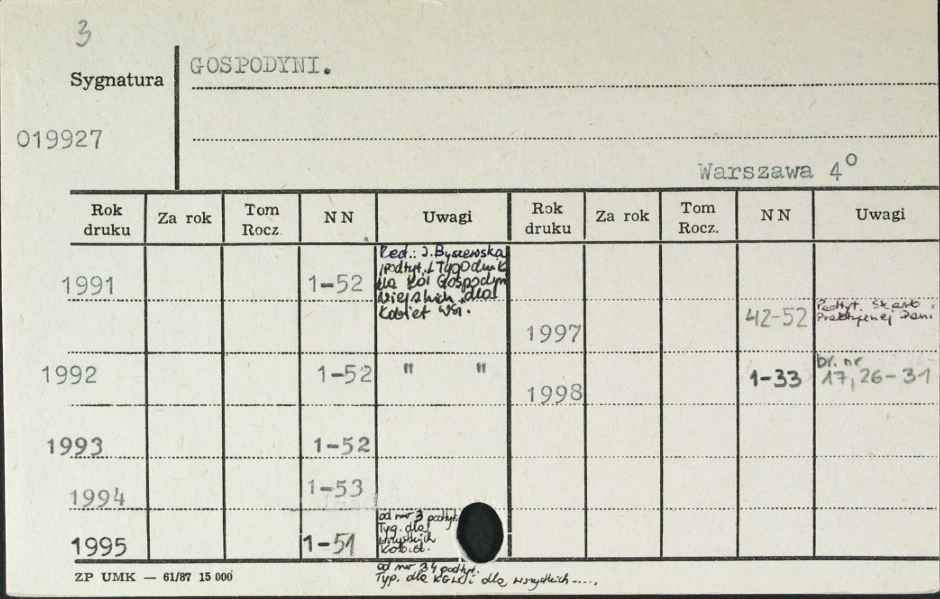 3
Sygnatura
GOSPODYNI.
019927
Warszawa 4°
Rok druku Za rok Tom Rocz. NN Uwagi Rok druku Za rok Tom Rocz. NN Uwagi
1991 1-52
Red.: J. Byszewska
/podtyt./ Tygodnik
dla Kół Gospodyń
Wiejskich dla
Kobiet Wsi.
1997 42-52
Podtyt.
Praktycznej Pani
1992 1-52 " "
1998 1-33
br. nr
17, 26-31
1993 1-52
1994 1-53
1995 1-51
od nr 3 podtyt.
Tyg. dla
wszystkich
Kobiet.
od nr 34 podtyt.
Typ. dla KGW i dla wszystkich ----.
ZP UMK — 61/87 15 000